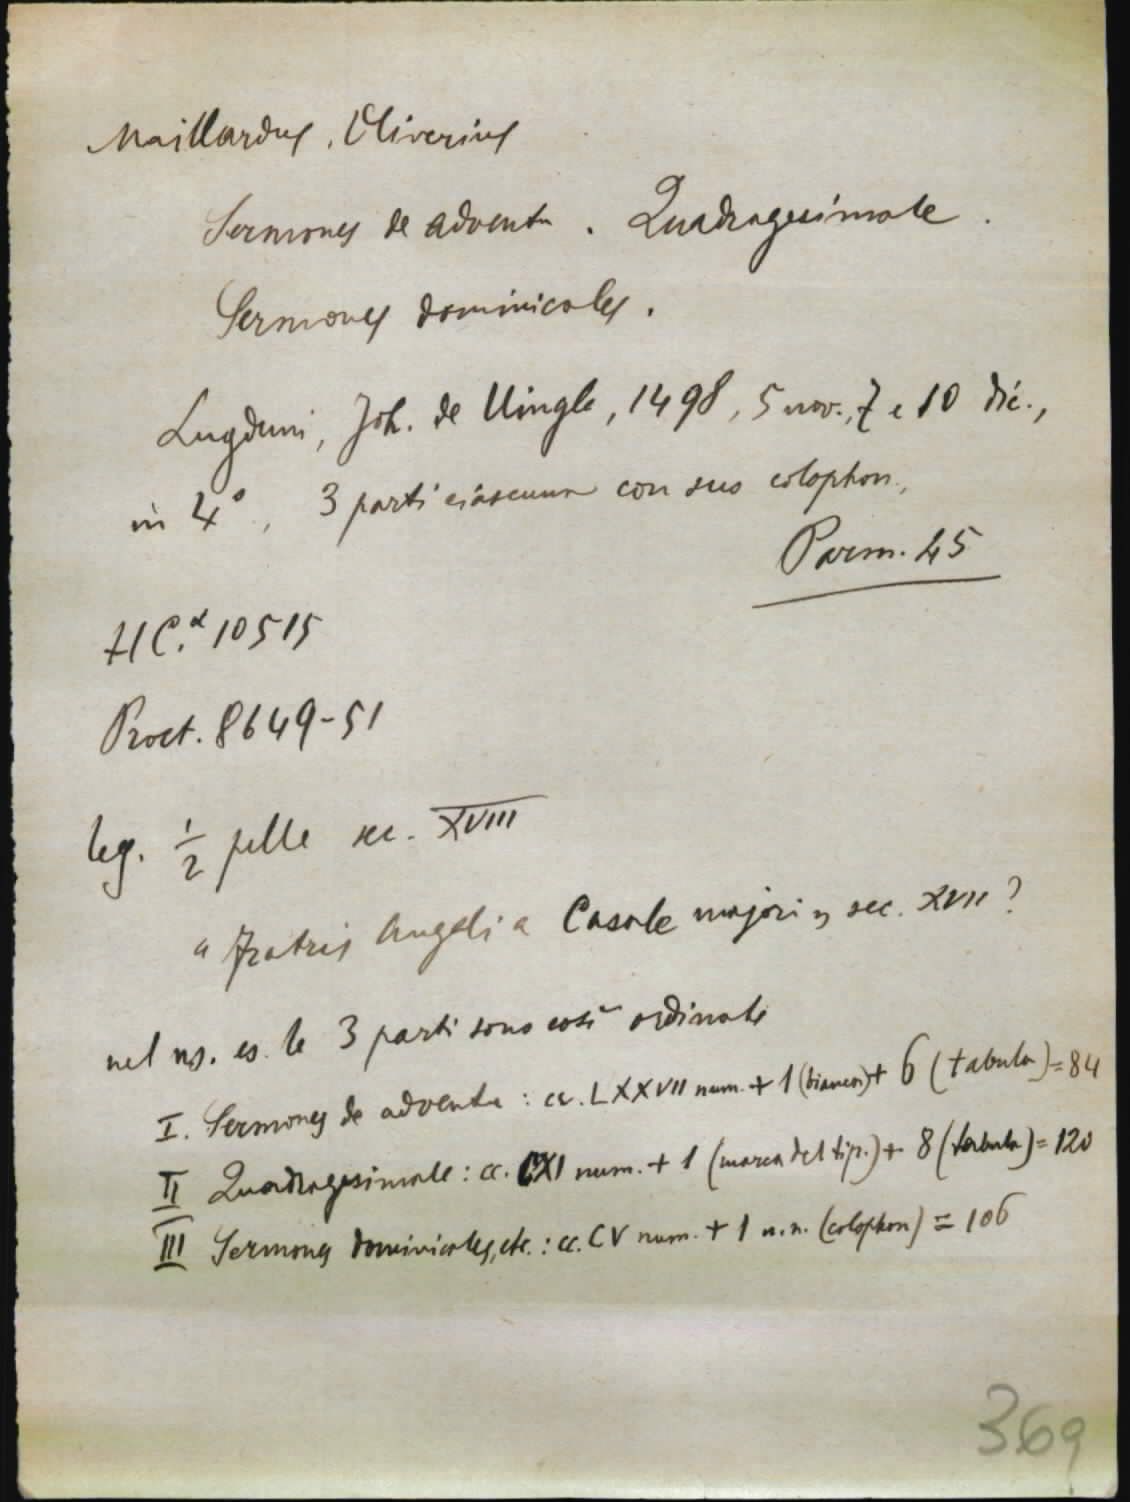 Maillardus, Oliverius
Sermones de adventu. Quadragesimale.
Sermones dominicales.
Lugduni, Joh. de Vingle, 1498, 5 nov., 7 e 10 dic.,
in 4°, 3 parti ciascuna con suo colophon.,
Parm. 45
HC.* 10515
Proct. 8649-51
leg. 1/2 pelle sec. XVIII
"Fratris Angeli a Casale majori", sec. XVII?
nel ns. es. le 3 parti sono così ordinate
I. Sermones de adventu: cc. LXXVII num. + 1 (bianca) + 6 (tabula) = 84
II Quadragesimale: cc. CXI num. + 1 (marca del tip.) + 8 (tabula) = 120
III Sermones dominicales, etc.: cc. CV num. + 1 n.n. (colophon) = 106
369